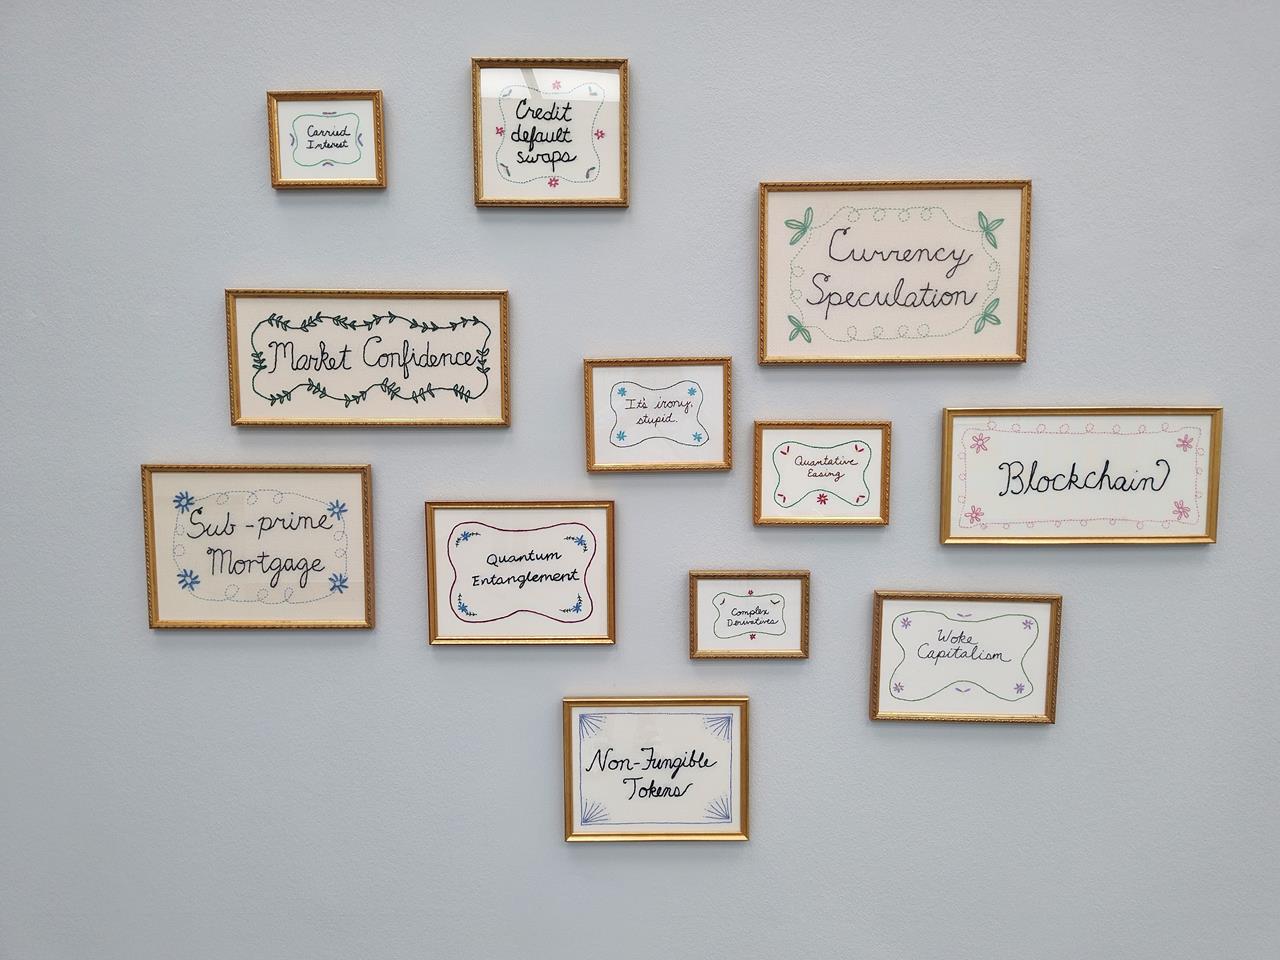 Carried
Interest
Credit
default
swaps
Currency
Speculation
Market Confidence
It's irony,
stupid.
Quantative
Easing
Blockchain
Sub-prime
Mortgage
Quantum
Entanglement
Complex
Derivatives
Woke
Capitalism
Non-Fungible
Tokens